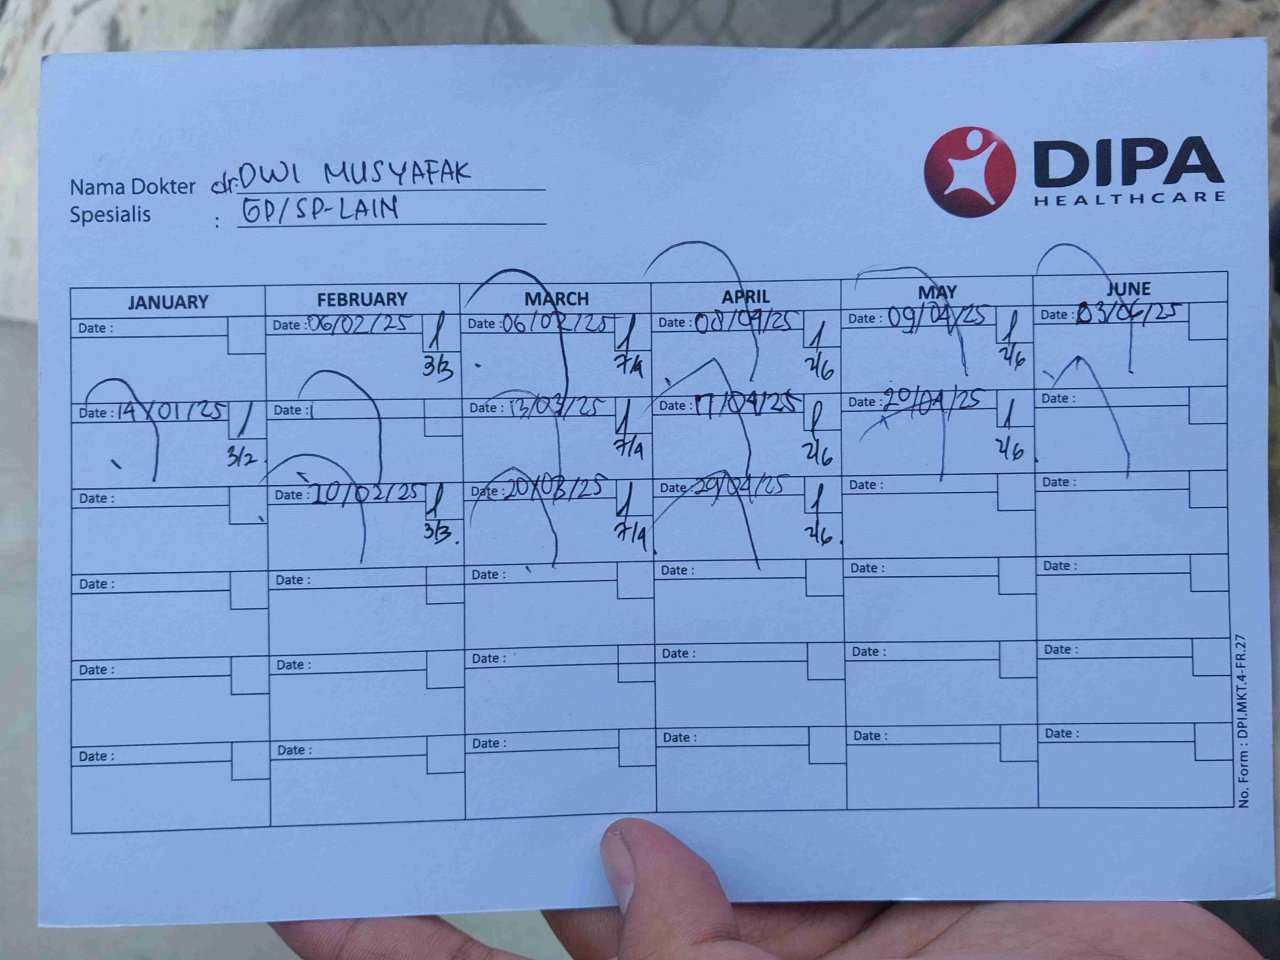 DIPA
HEALTHCARE
Nama Dokter dr. DWI MUSYAFAK
Spesialis : GP/SP-LAIN
JANUARY FEBRUARY MARCH APRIL MAY JUNE
Date : Date : 06/02/25 Date : 06/02/25 Date : 08/04/25 Date : 09/04/25 Date : 03/06/25
3/3 7/4 2/6 2/6
Date : 14/01/25 Date : Date : 13/03/25 Date : 17/04/25 Date : 20/04/25 Date :
3/2 7/4 2/6 2/6
Date : Date : 10/02/25 Date : 20/03/25 Date : 29/04/25 Date : Date :
3/3 7/4 2/6
Date : Date : Date : Date : Date : Date :
Date : Date : Date : Date : Date : Date :
Date : Date : Date : Date : Date : Date :
No. Form : DPI.MKT.4-FR.27